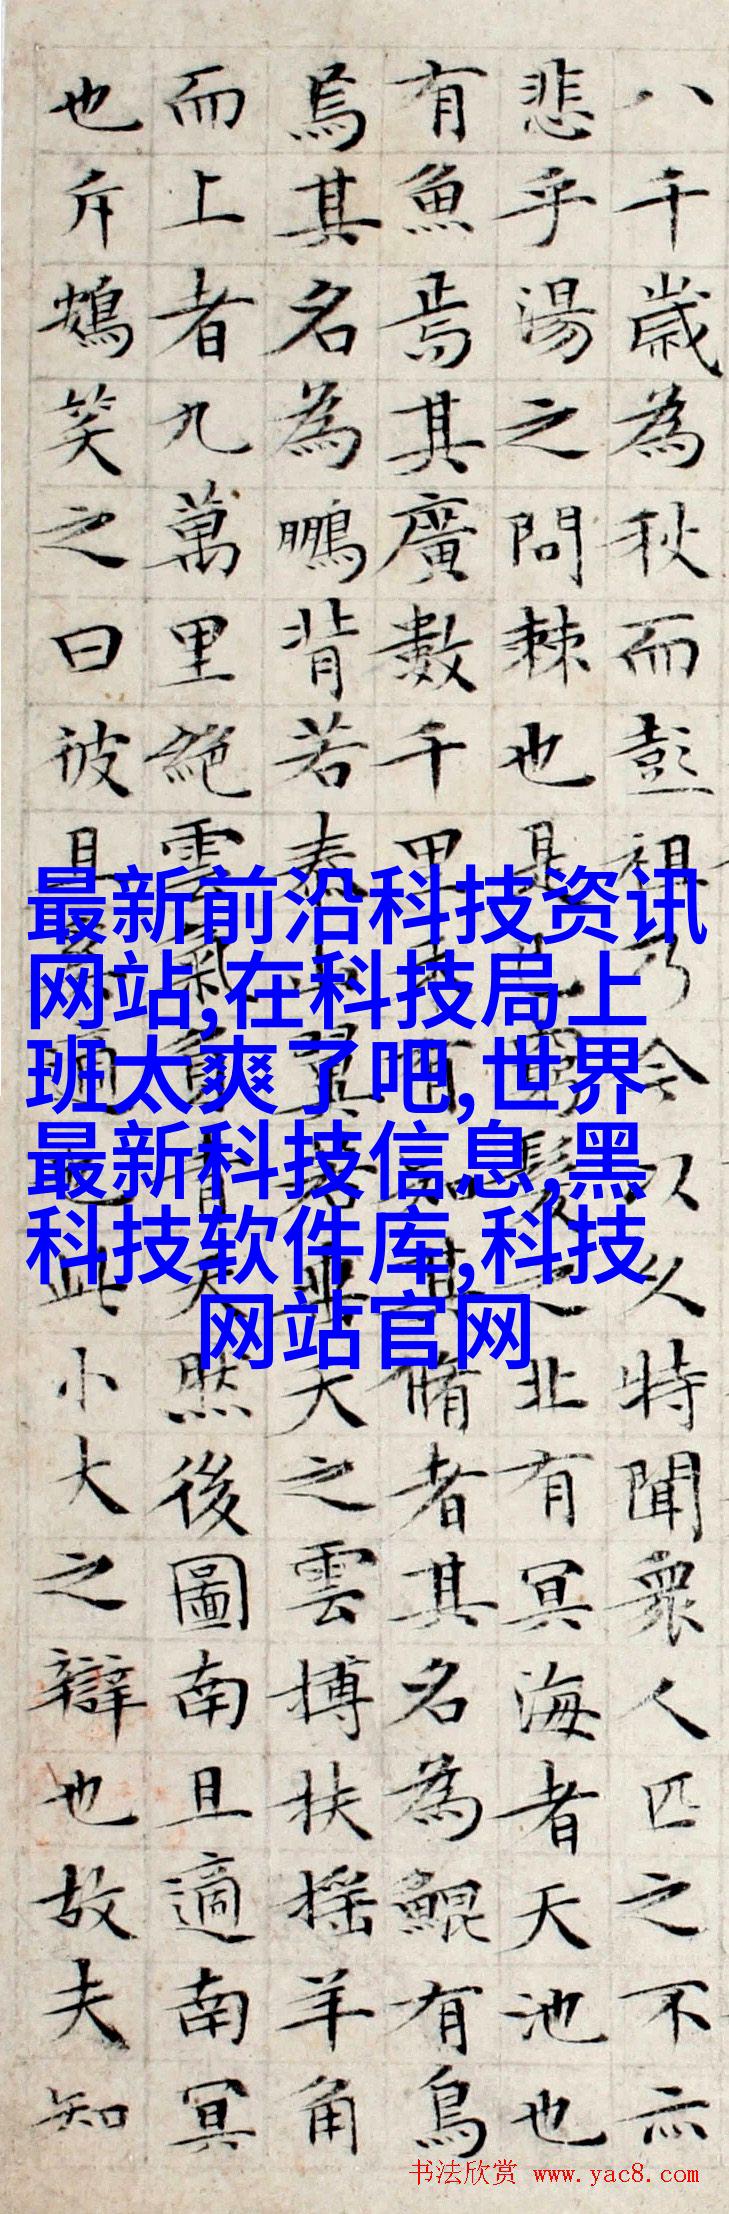 八千歲為秋而彭祖乃今以久特聞衆人匹之不亦
悲乎湯之問棘也是已窮髮之北有冥海者天池也
有魚焉其廣數千里未有知其脩者其名為鯤有鳥
焉其名為鵬背若泰山翼若垂天之雲搏扶搖羊角
而上者九萬里絕雲氣負青天然後圖南且適南冥
也斥鴳笑之曰彼且奚適也此小大之辯也故夫知
最新前沿科技资讯
网站,在科技局上
班太爽了吧,世界
最新科技信息,黑
科技软件库,科技
网站官网
书法欣赏 www.yac8.com